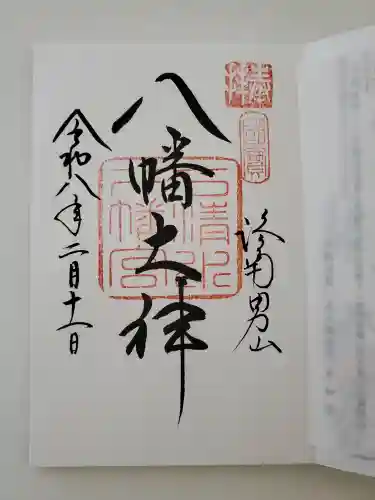 奉拝
國寶
洛南男山
八幡大神
石清水
八幡宮
令和八年二月十一日